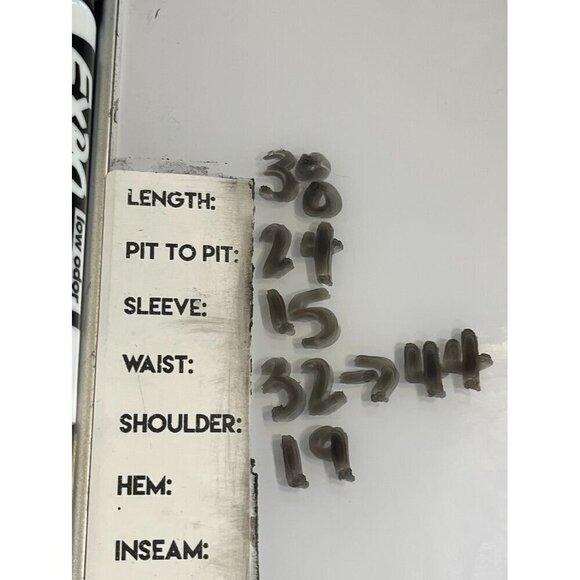 EXPO low odor
LENGTH: 38
PIT TO PIT: 24
SLEEVE: 15
WAIST: 32→44
SHOULDER: 19
HEM:
INSEAM: